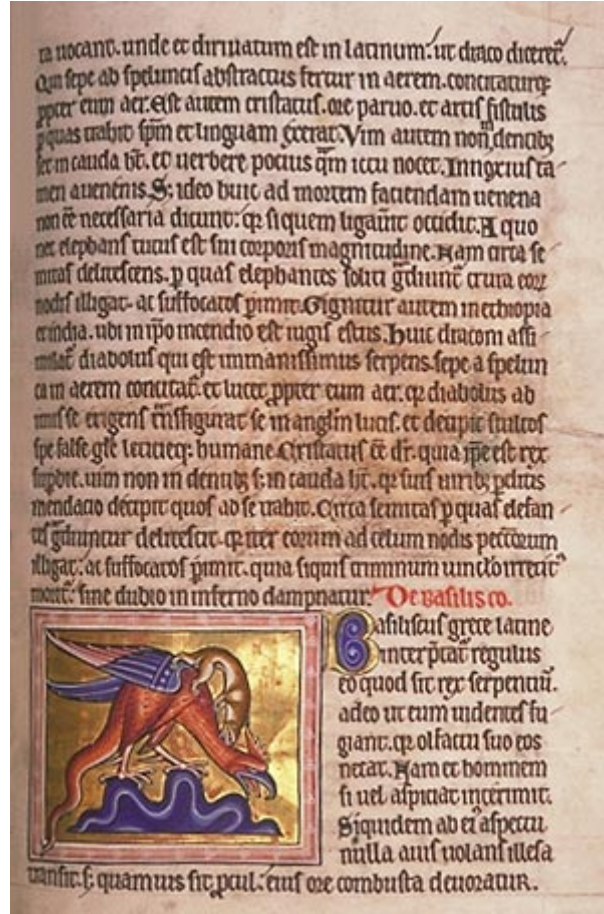 ta uocant. unde et diriuatum est in latinum. ut draco diceret᷑.
Qui sepe ab speluncis abstractus fertur in aerem. concitaturq;
ꝓpter eum aer. Est autem cristatus. ore paruo. et artis fistulis
p quas trahit sp̄m et linguam exerat. Vim autem non dentibꝫ
set in cauda ht̄. et uerbere pocius qm̄ ictu nocet. Innoxius ta
men a uenenis. S; ideo huic ad mortem faciendam uenena
non cē necessaria dicunt. qꝛ si quem ligauit occidit. A quo
nec elephans tutus est sui corporis magnitudine. Nam circa se
mitas delitescens. p quas elephantes soliti gͣdiunt᷑ crura eoꝝ
nodis illigat. ac suffocatos pimit. Gignitur autem in ethiopia
et india. ubi in ip̄o incendio est iugis estus. Huic draconi assi
milat᷑ diabolus qui est immanissimus serpens. sepe a spelun
ca in aerem concitat᷑. et lucet ꝓpter eum aer. qꝛ diabolus ab
imis se erigens tͣnsfigurat se in angl̄m lucis. et decipit stultos
spe false gl̄e leticieq; humane. Cristatus cē dr̄. quia ip̄e est rex
supbie. uim non in dentibꝫ s; in cauda ht̄. qꝛ suis uiribꝫ pditis
mendacio decipit quos ad se trahit. Circa semitas p quas elefan
tes gͣdiuntur delitescit. qꝛ iter eorum ad celum nodis peccatorum
illigat. ac suffocatos pimit. quia siquis criminum uinclo irretit᷑
morit᷑. sine dubio in inferno dampnatur. De basilisco.
Basiliscus grece latine
interp̄tat᷑ regulus
eo quod sit rex serpentiū.
adeo ut eum uidentes fu
giant. qꝛ olfactu suo eos
necat. Nam et hominem
si uel aspiciat interimit.
Siquidem ab ei᷒ aspectu
nulla auis uolans illesa
transit. s; quamuis sit ꝓcul. eius ore combusta deuoratur.